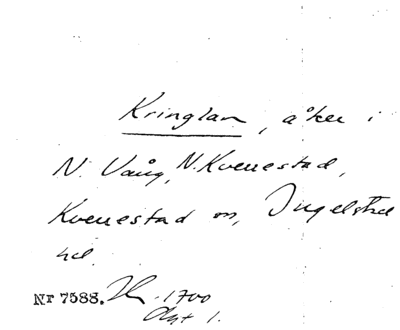 Kringlan, åker i
N. Vång, N. Kvenestad,
Kvenestad sn, Ingelstad
hd.
Nr 7588. 1700
Akt 1.